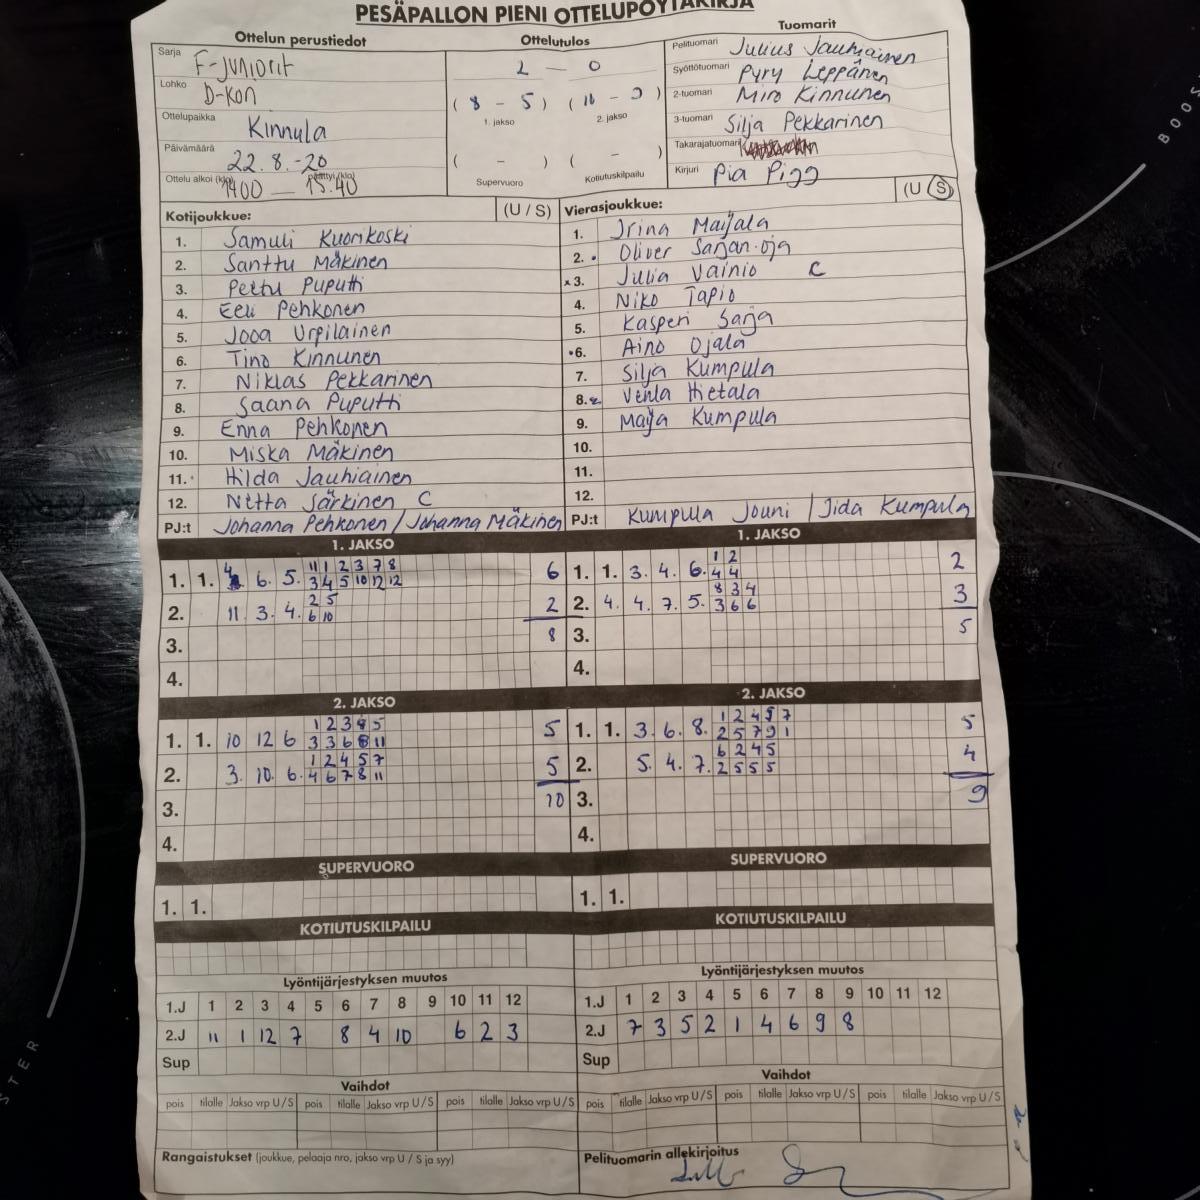 PESÄPALLON PIENI OTTELUPÖYTÄKIRJA
Ottelun perustiedot
Sarja F-juniorit
Lohko D-Kon
Ottelupaikka Kinnula
Päivämäärä 22.8.-20
Ottelu alkoi (klo) 1400 päättyi (klo) 15.40
Ottelutulos
2 - 0
(8 - 5) (10 - 9)
1. jakso 2. jakso
( - ) ( - )
Supervuoro Kotiutuskilpailu
Tuomarit
Pelituomari Julius Jauhiainen
Syöttötuomari Pyry Leppänen
2-tuomari Miro Kinnunen
3-tuomari Silja Pekkarinen
Takarajatuomari
Kirjuri Pia Pigg
Kotijoukkue: (U / S)
1. Samuli Kuorikoski
2. Santtu Mäkinen
3. Pettu Puputti
4. Eeli Pehkonen
5. Jooa Urpilainen
6. Tino Kinnunen
7. Niklas Pekkarinen
8. Saana Puputti
9. Enna Pehkonen
10. Miska Mäkinen
11. Hilda Jauhiainen
12. Netta Särkinen C
PJ:t Johanna Pehkonen / Johanna Mäkinen
Vierasjoukkue: (U / S)
1. Irina Maijala
2. Oliver Sarjan-oja
x3. Julia Vainio C
4. Niko Tapio
5. Kasperi Sarja
6. Aino Ojala
7. Silja Kumpula
8. Venla Hietala
9. Maija Kumpula
10.
11.
12.
PJ:t Kumpula Jouni / Iida Kumpula
1. JAKSO
11 1 2 3 7 8
1. 1. 4 6. 5. 3 4 5 10 12 12 6
2 5
2. 11. 3. 4. 6 10 2
3. 8
4.
1. JAKSO
1 2
1. 1. 3. 4. 6. 4 4 2
8 3 4
2. 4. 4. 7. 5. 3 6 6 3
3. 5
4.
2. JAKSO
1 2 3 8 5
1. 1. 10 12 6 3 3 6 8 11 5
1 2 4 5 7
2. 3. 10. 6. 4 6 7 8 11 5
3. 10
4.
2. JAKSO
1 2 4 5 7
1. 1. 3. 6. 8. 2 5 7 9 1 5
6 2 4 5
2. 5. 4. 7. 2 5 5 5 4
3. 9
4.
SUPERVUORO
1. 1.
SUPERVUORO
1. 1.
KOTIUTUSKILPAILU
KOTIUTUSKILPAILU
Lyöntijärjestyksen muutos
1.J 1 2 3 4 5 6 7 8 9 10 11 12
2.J 11 1 12 7 8 4 10 6 2 3
Sup
Lyöntijärjestyksen muutos
1.J 1 2 3 4 5 6 7 8 9 10 11 12
2.J 7 3 5 2 1 4 6 9 8
Sup
Vaihdot
pois tilalle Jakso vrp U / S pois tilalle Jakso vrp U / S pois tilalle Jakso vrp U / S
Vaihdot
pois tilalle Jakso vrp U / S pois tilalle Jakso vrp U / S pois tilalle Jakso vrp U / S
Rangaistukset (joukkue, pelaaja nro, jakso vrp U / S ja syy)
Pelituomarin allekirjoitus
BOOS
STER